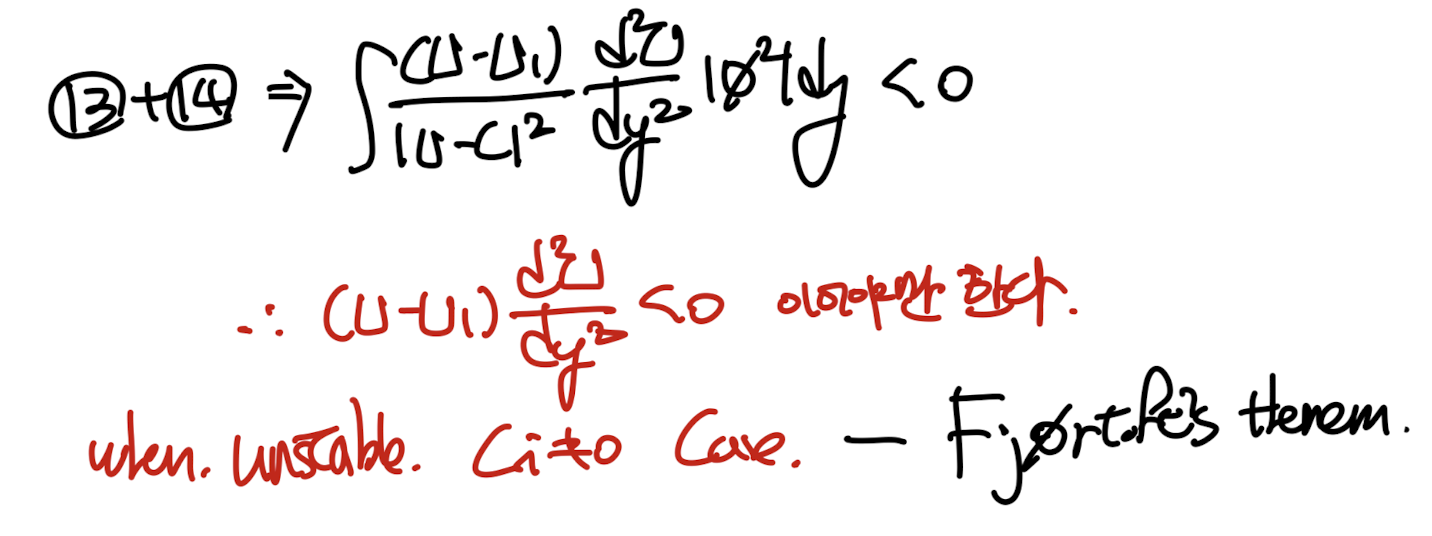 ⑬+⑭ ⇒ ∫ (U-U₁)/|U-C|² d²U/dy² |ø²|dy < 0
∴ (U-U₁) d²U/dy² < 0 이어야만 한다.
when. unstable. Ci≠0 Case. — Fjørtoft's Therem.